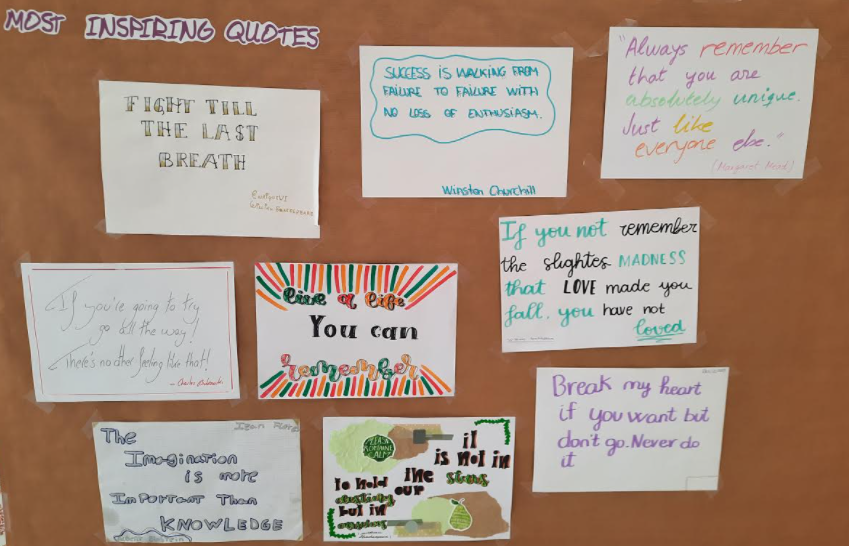 MOST INSPIRING QUOTES
FIGHT TILL
THE LAST
BREATH
SUCCESS IS WALKING FROM
FAILURE TO FAILURE WITH
NO LOSS OF ENTHUSIASM.
Winston Churchill
"Always remember
that you are
absolutely unique.
Just like
everyone else."
(Margaret Mead)
If you not remember
the slightes MADNESS
that LOVE made you
fall, you have not
loved
If you're going to try
go all the way!
There's no other feeling like that!
live a life
You can
remember
Break my heart
if you want but
don't go. Never do
it
The
Imagination
is more
Important Than
KNOWLEDGE
it
is not in
the stars
To hold
our
destiny
but in